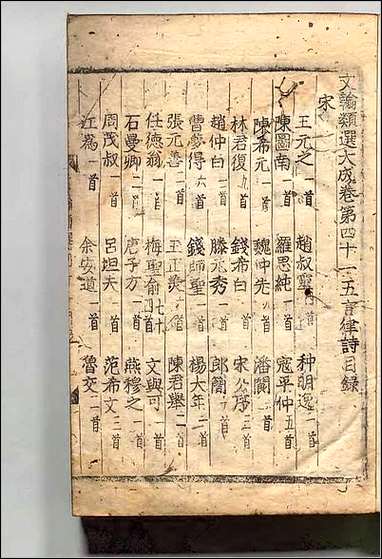 文翰類選大成卷第四十一 五言律詩目錄
宋
王元之一首 趙叔靈 首 种明逸一首
陳圖南一首 羅思純一首 寇平仲五首
陳希元一首 魏仲先 首 潘閬一首
林君復 首 錢希白一首 宋公序三首
趙仲白一首 滕元秀一首 郎簡一首
曹夢得 首 錢師聖一首 楊大年二首
張元善一首 王正美一首 陳君舉二首
任德翁一首 梅聖俞 七十 首 文與可一首
石曼卿二首 唐子方一首 燕穆之一首
周茂叔一首 呂坦夫一首 范希文三首
江嵩一首 余安道一首 魯交一首